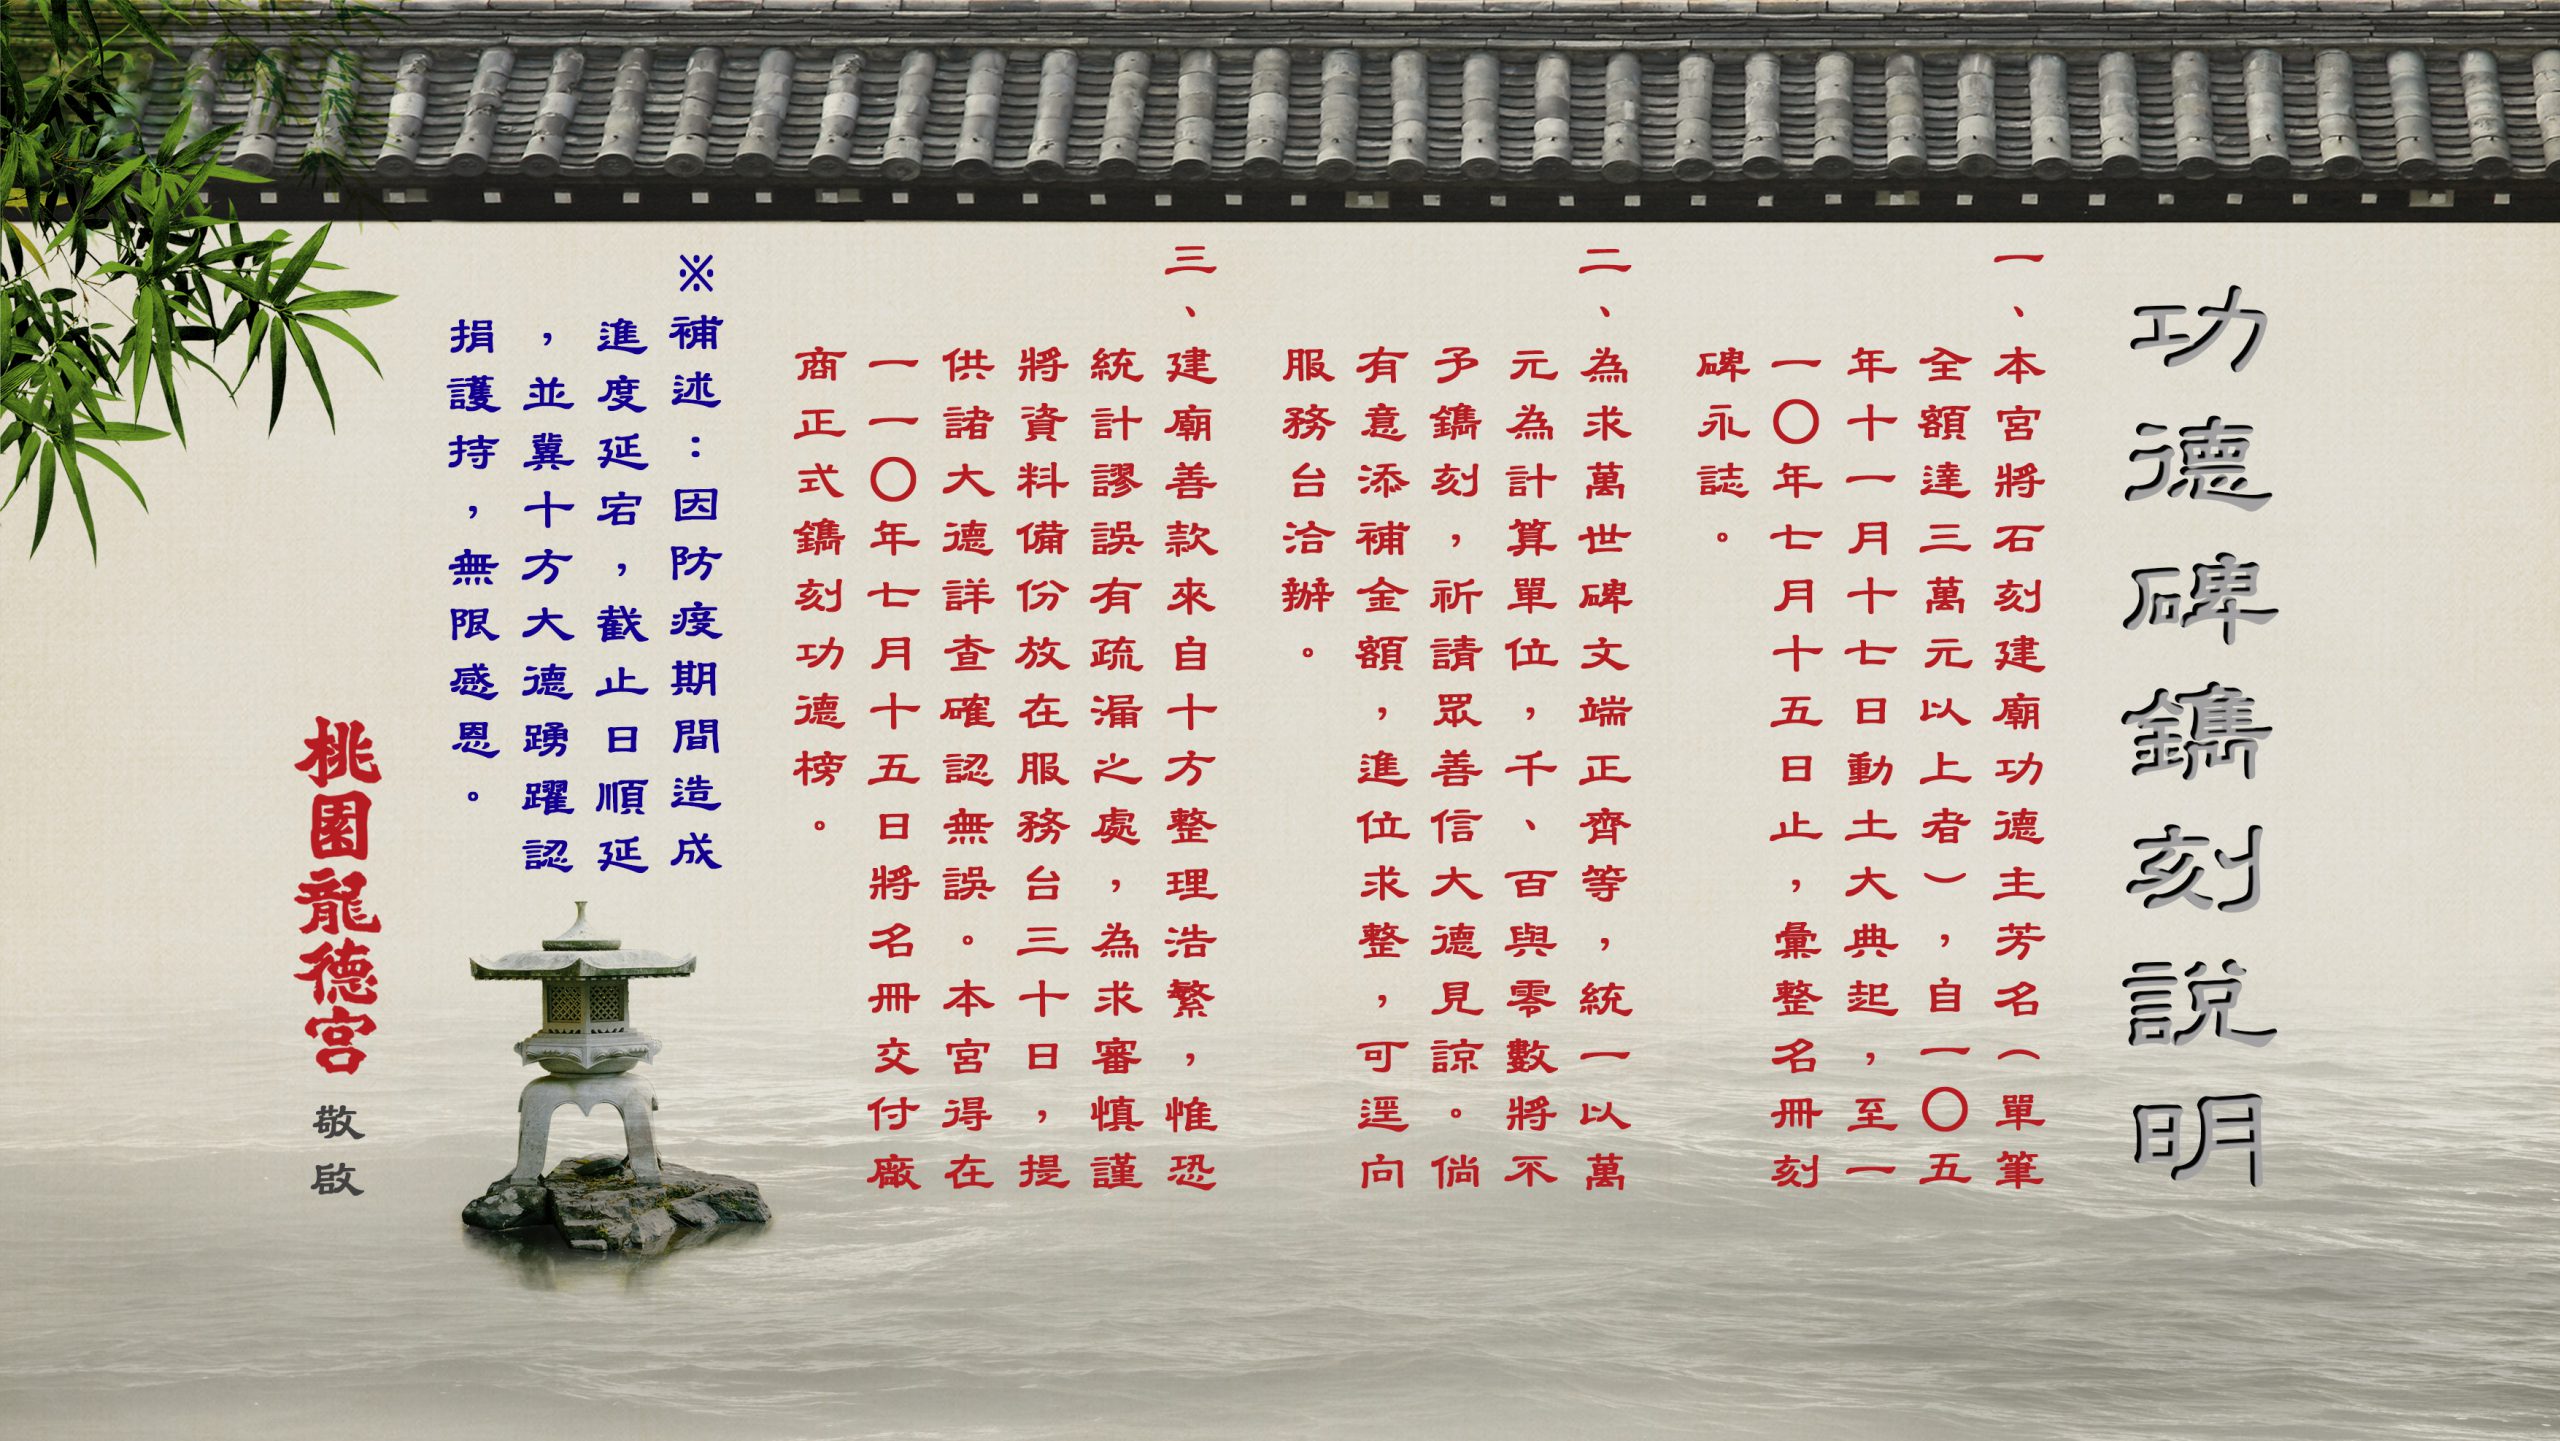 功德碑鐫刻說明
一、本宮將石刻建廟功德主芳名（單筆
全額達三萬元以上者），自一〇五
年十一月十七日動土大典起，至一
一〇年七月十五日止，彙整名冊刻
碑永誌。
二、為求萬世碑文端正齊等，統一以萬
元為計算單位，千、百與零數將不
予鐫刻，祈請眾善信大德見諒。倘
有意添補金額，進位求整，可逕向
服務台洽辦。
三、建廟善款來自十方整理浩繁，惟恐
統計謬誤有疏漏之處，為求審慎謹
將資料備份放在服務台三十日，提
供諸大德詳查確認無誤。本宮得在
一一〇年七月十五日將名冊交付廠
商正式鐫刻功德榜。
※補述：因防疫期間造成
進度延宕，截止日順延
，並冀十方大德踴躍認
捐護持，無限感恩。
桃園龍德宮 敬啟